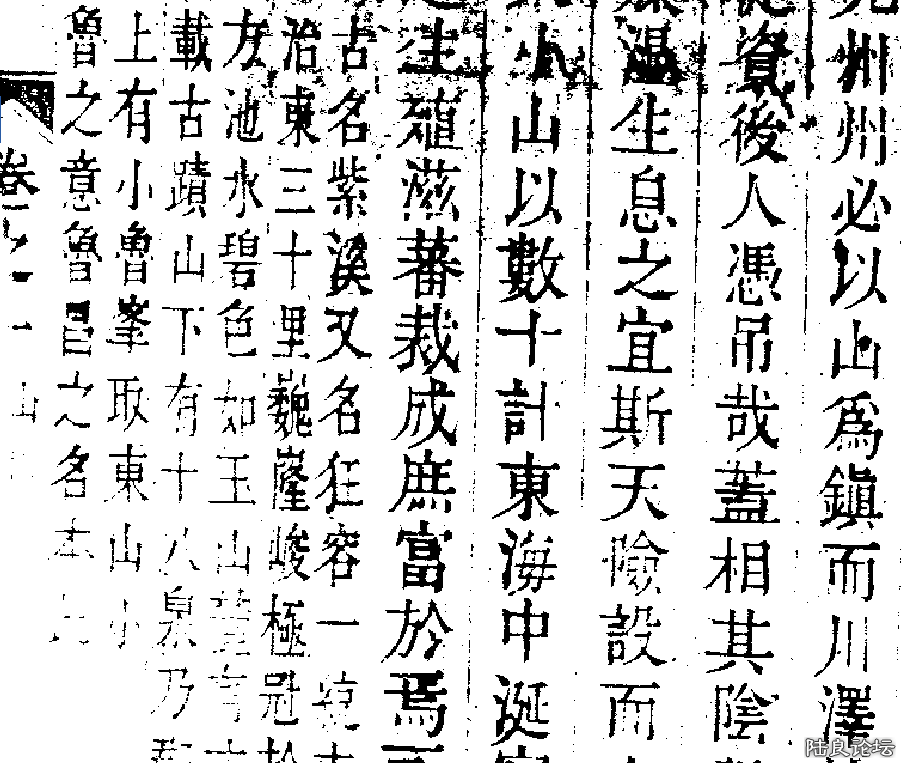 州州必以山為鎮而川澤
資後人憑吊哉蓋相其陰
溫生息之宜斯天險設而
小山以數十計東海中涎
生殖滋蕃裁成庶富於焉
古名紫溪又名狂容一
治東三十里巍隆峻極冠於
友池水碧色如玉山麓有
載古蹟山下有十八泉乃
上有小魯峯取東山小
魯之意魯昌之名本此
卷
一
山
陆良论坛